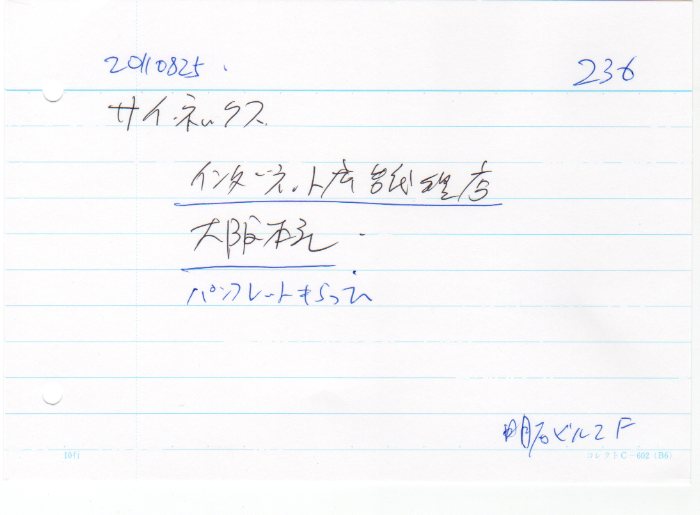 20110825.
236
サイネックス
インターネット広告代理店
大阪本社
パンフレットもらって
明石ビル2F
10行
コレクト C-602 (B6)